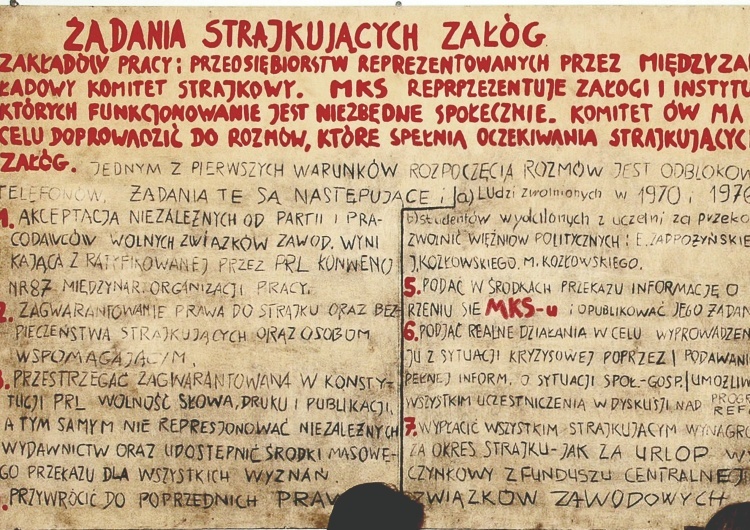 ŻĄDANIA STRAJKUJĄCYCH ZAŁÓG
ZAKŁADÓW PRACY i PRZEDSIĘBIORSTW REPREZENTOWANYCH PRZEZ MIĘDZYZA
ŁADOWY KOMITET STRAJKOWY. MKS REPRPZEZENTUJE ZAŁOGI I INSTYTU
KTÓRYCH FUNKCJONOWANIE JEST NIEZBĘDNE SPOŁECZNIE. KOMITET ÓW MA
CELU DOPROWADZIĆ DO ROZMÓW, KTÓRE SPEŁNIĄ OCZEKIWANIA STRAJKUJĄCYC
ZAŁÓG. JEDNYM Z PIERWSZYCH WARUNKÓW ROZPOCZĘCIA ROZMÓW JEST ODBLOKOW
TELEFONÓW. ŻĄDANIA TE SĄ NASTĘPUJĄCE:
1. AKCEPTACJA NIEZALEŻNYCH OD PARTII I PRA-
CODAWCÓW WOLNYCH ZWIĄZKÓW ZAWOD. WYNI
KAJĄCA Z RATYFIKOWANEJ PRZEZ PRL KONWENCJI
NR 87 MIĘDZYNAR. ORGANIZACJI PRACY.
2. ZAGWARANTOWANIE PRAWA DO STRAJKU ORAZ BEZ-
PIECZEŃSTWA STRAJKUJĄCYCH ORAZ OSOBOM
WSPOMAGAJĄCYM.
3. PRZESTRZEGAĆ ZAGWARANTOWANĄ W KONSTY-
TUCJI PRL WOLNOŚĆ SŁOWA, DRUKU I PUBLIKACJI,
A TYM SAMYM NIE REPRESJONOWAĆ NIEZALEŻNYCH
WYDAWNICTW ORAZ UDOSTĘPNIĆ ŚRODKI MASOWE-
GO PRZEKAZU DLA WSZYSTKICH WYZNAŃ
. PRZYWRÓCIĆ DO POPRZEDNICH PRAW
a) LUdzi zwolnionych w 1970 i 1976
b) studentów wydalonych z uczelni za przeko
ZWOLNIĆ WIĘŹNIÓW POLITYCZNYCH: E. ZADROŻYŃSKIE
J. KOZŁOWSKIEGO, M. KOZŁOWSKIEGO.
5. PODAĆ W ŚRODKACH PRZEKAZU INFORMACJĘ O
RZENIU SIĘ MKS-u i OPUBLIKOWAĆ JEGO ŻĄDAN
6. PODJĄĆ REALNE DZIAŁANIA W CELU WYPROWADZEN
JU Z SYTUACJI KRYZYSOWEJ POPRZEZ PODAWANI
PEŁNEJ INFORM. O SYTUACJI SPOŁ-GOSP. UMOŻLIW
WSZYSTKIM UCZESTNICZENIA W DYSKUSJI NAD PROGR
REF
7. WYPŁACIĆ WSZYSTKIM STRAJKUJĄCYM WYNAGRO
ZA OKRES STRAJKU-JAK ZA URLOP WY
CZYNKOWY Z FUNDUSZU CENTRALNEJ
ZWIĄZKÓW ZAWODOWYCH